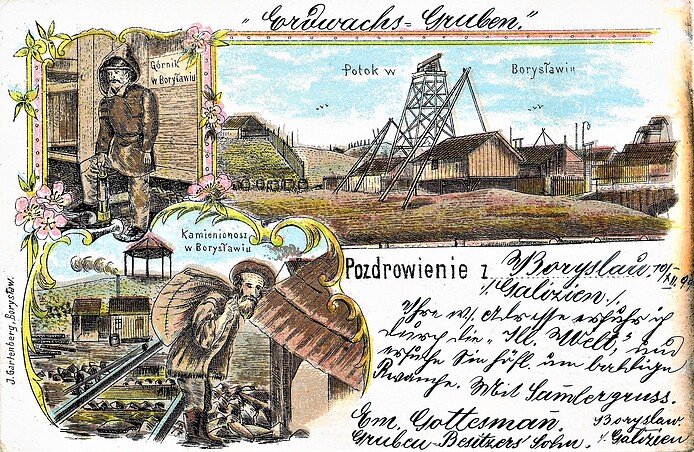 "Erdwachs=Gruben."
Górnik
w Borysławiu
Potok w Borysławiu
Kamienionosz
w Borysławiu
Pozdrowienie z Boryslau 10/
XII. 9
/: Galizien :/
Ihre w/ Adresse erfuhr ich
durch die "Ill. Welt," und
ersuche Sie höfl. um baldige
Revanche. Mit Samlergruss.
Em. Gottesmañ. Boryslaw.
Gruben-Besitzers Sohn. /. Galizien
J. Gartenberg, Borysław.